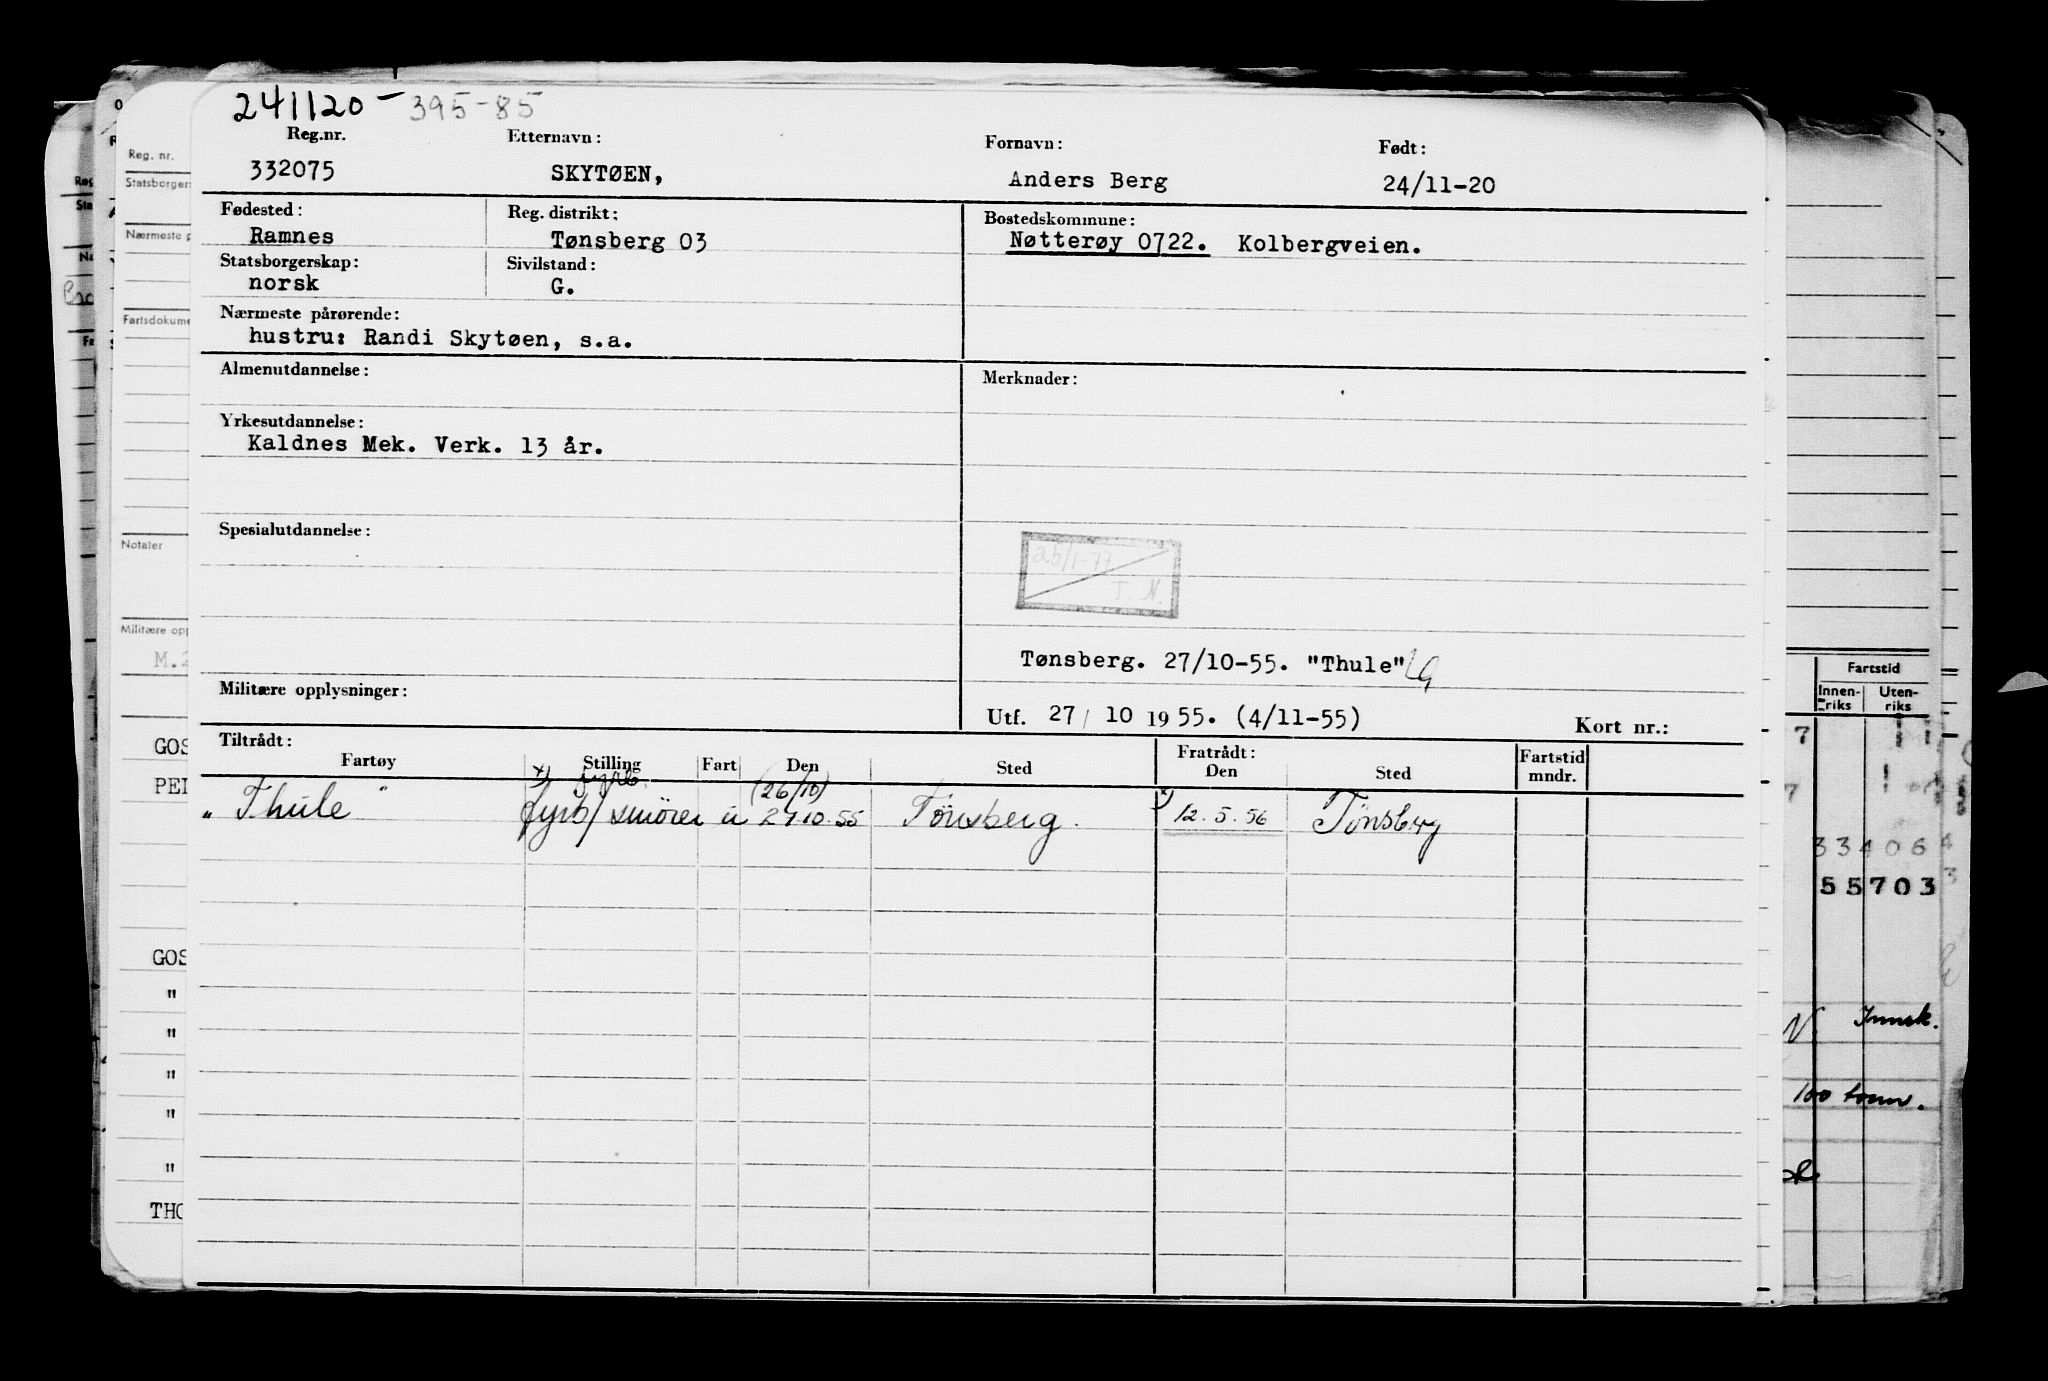 241120-395-85
Reg.nr. Etternavn: Fornavn: Født:
332075 SKYTØEN, Anders Berg 24/11-20
Fødested: Reg. distrikt: Bostedskommune:
Ramnes Tønsberg 03 Nøtterøy 0722. Kolbergveien.
Statsborgerskap: Sivilstand:
norsk G.
Nærmeste pårørende:
hustru: Randi Skytøen, s.a.
Almenutdannelse: Merknader:
Yrkesutdannelse:
Kaldnes Mek. Verk. 13 år.
Spesialutdannelse:
T. N.
Tønsberg. 27/10-55. "Thule"
Militære opplysninger:
Utf. 27/ 10 1955. (4/11-55) Kort nr.:
Tiltrådt: Fratrådt:
Fartøy Stilling Fart Den Sted Den Sted Fartstid mndr.
x) fyrb. (26/10) x)
"Thule" fyrb/smører u 27.10.55 Tönsberg. 12.5.56 Tønsberg
Reg. nr.
Statsborgers
Nærmeste p
Fartsdokume
Notater
Militære opp
M.2
GOS
PEI
GOS
"
"
"
"
"
THO
Fartstid
Innen-riks Uten-riks
7
7
33406
55703
Innsk.
100 tonn.